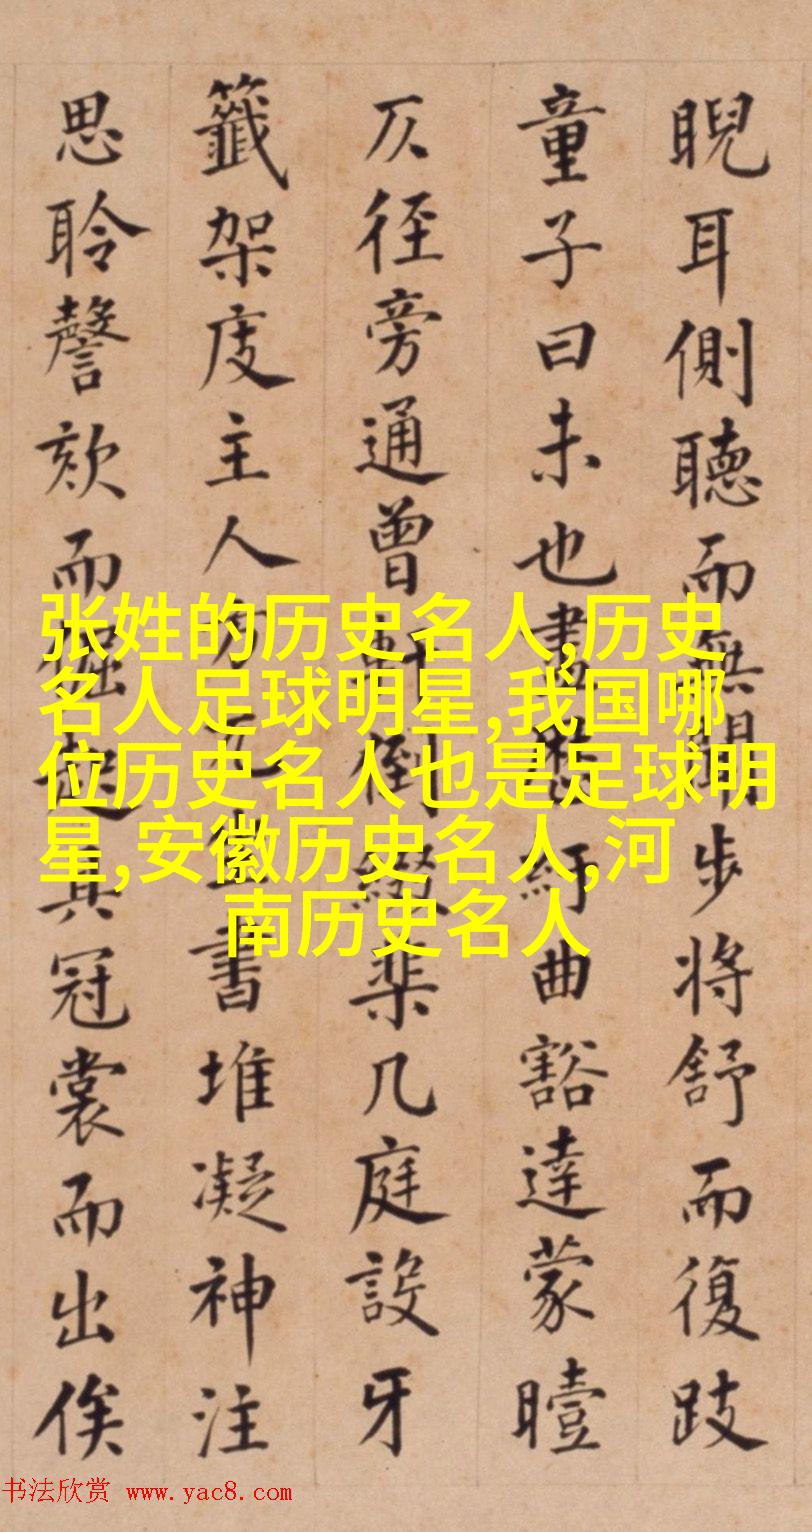 睨耳側聽而無聞步將舒而復跂
童子曰未也盡紆曲豁達蒙曀
仄徑旁通曾倒綴棐几庭設牙
籤架庋主人方兀坐書堆凝神注
思聆謦欬而具冠裳而出俟
张姓的历史名人,历史
名人足球明星,我国哪
位历史名人也是足球明
星,安徽历史名人,河
南历史名人
书法欣赏 www.yac8.com